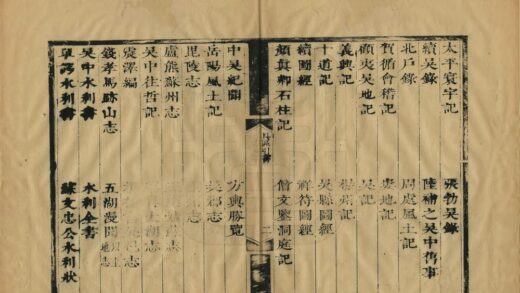 太平寰宇記
張勃吳錄
續吳錄
陸 之吳中舊事
北戶錄
周處風土記
賀循會稽記
婁地記
顧夷吳地記
吳記
義興記
 州記
十道記
吳縣圖經
續圖經
祥符圖經
顏真卿石柱記
 文鑒洞庭記
二
中吳紀聞
方輿勝覽
岳陽風土記
毘陵志
吳郡志
盧熊蘇州志
吳中往哲記
震澤編
錢孝馬跡山志
五湖漫聞
吳中水利書
水利全書
單諤水利書
蘇文忠公水利狀